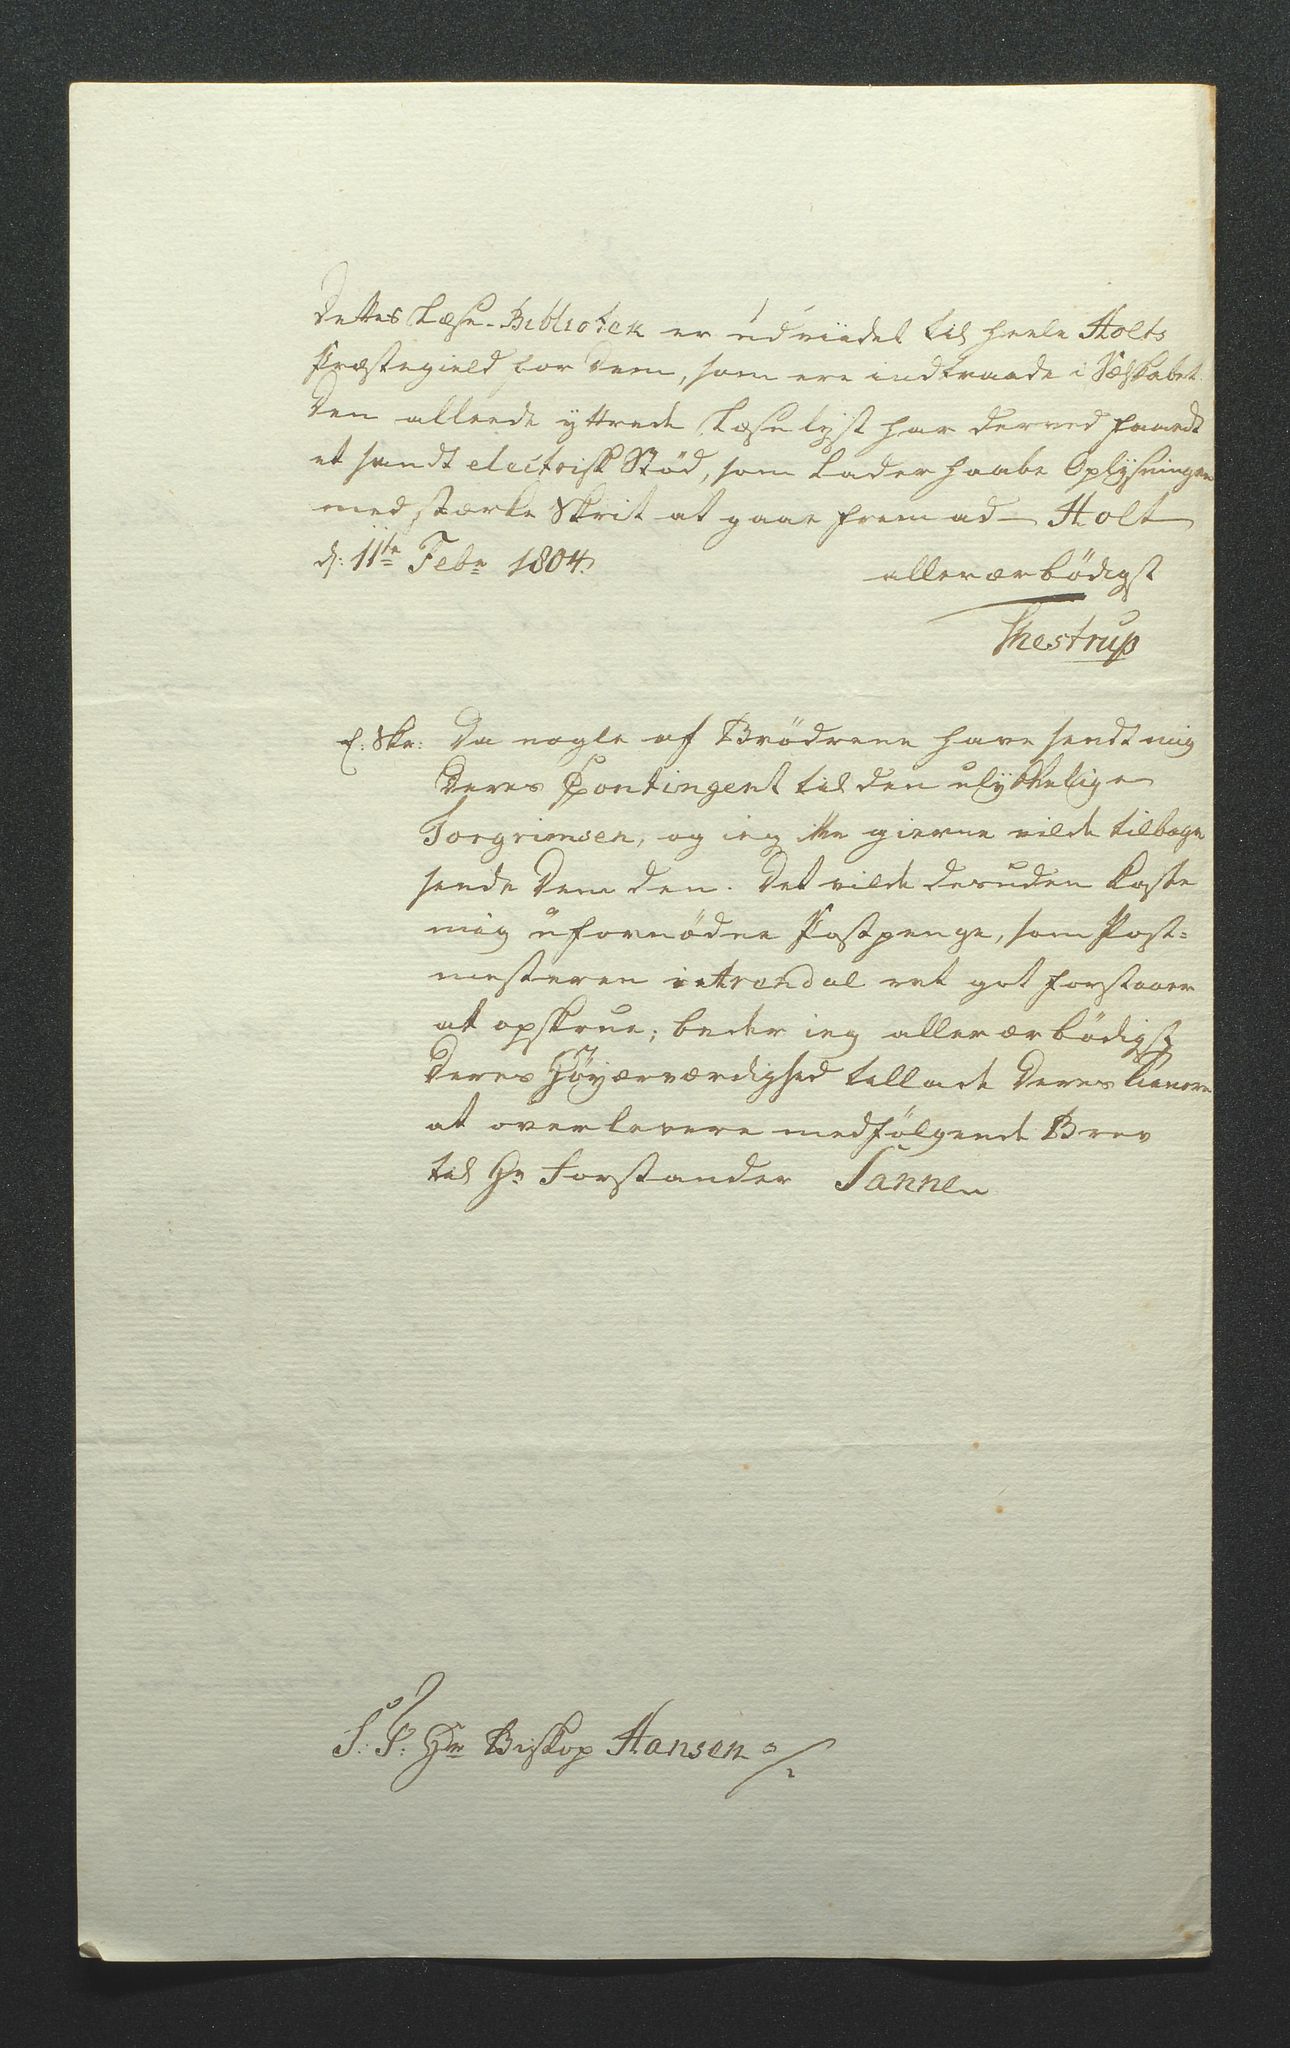 Dettes Læse-Bibliotek er udviidet til heele Holts
Præstegield for dem, som ere indtraade i Sælskabet.
Den allerede yttrede Læselyst har derved faaedt
et sandt electrisk Stød, som lader haabe Oplysningen
med stærke Skrit at gaae frem ad – Holt
d: 11te Febr 1804.
allerærbødigst
Thestrup
E: Skr: Da nogle af Brødrene have sendt mig
Deres Contingent til den ulykkelige
Torgrimsen, og ieg ikke gierne vilde tilbage
sende dem den. Det vilde desuden koste
mig ufornødne Postpenge, som Post=
mesteren i Arendal ret got forstaaer
at opskrue; beder ieg allerærbødigst
Deres Høyærværdighed tillade Deres Tienere
at overlevere medfølgende Brev
til Hr Forstander Sannen
S: T: Hr Biskop Hansen